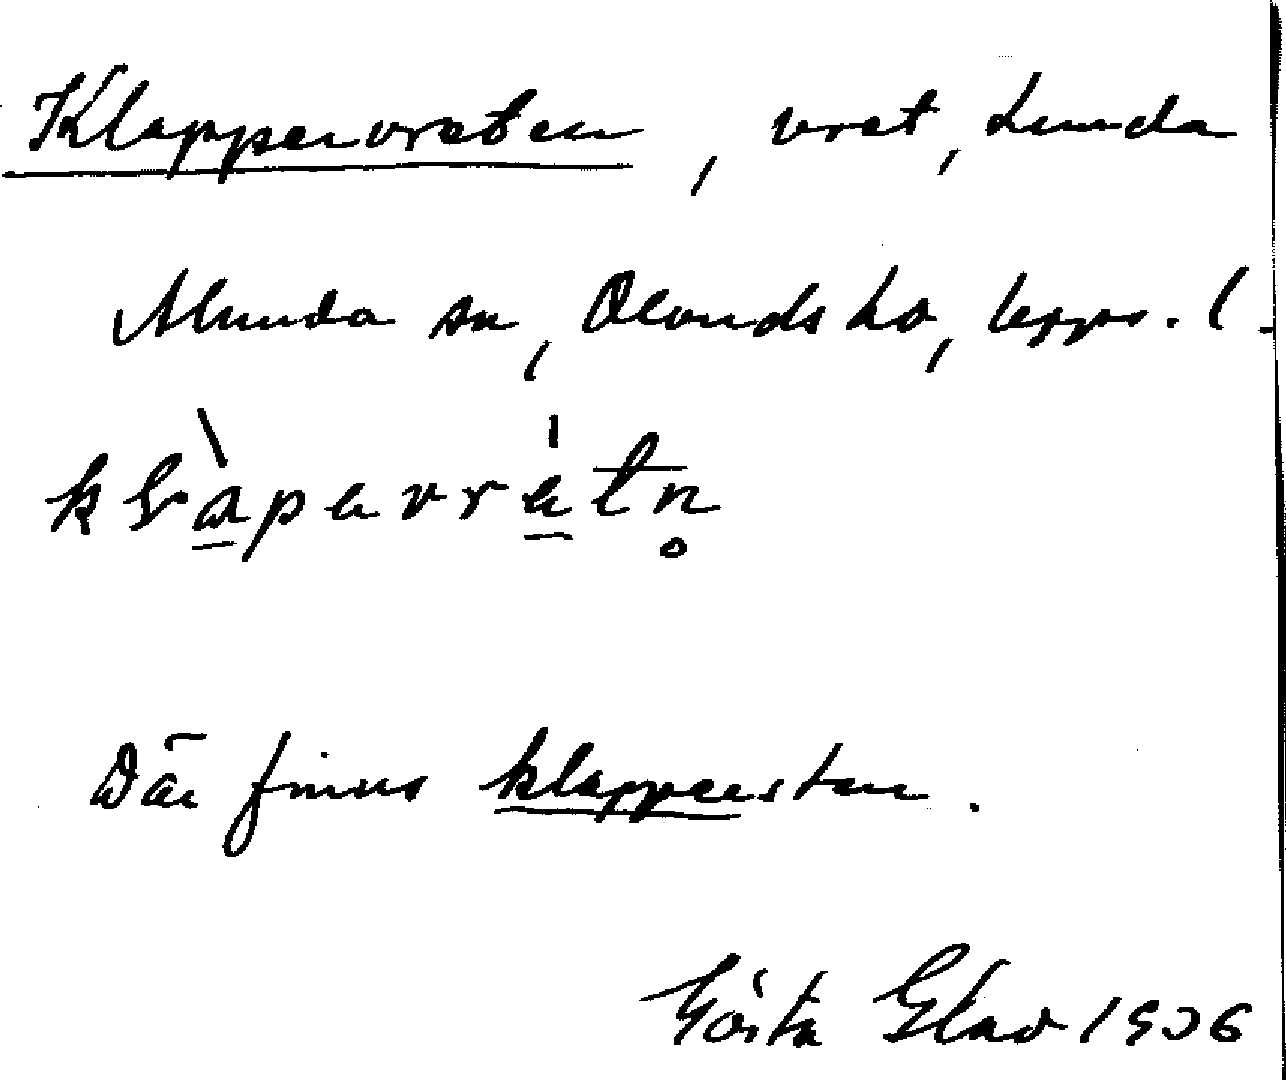 Klappervreten, vret, Lunda
Almunda sn, Ölands hd, Upps. l.
klàpavrétn̥
Där finns klappersten.
Gösta Glad 1936